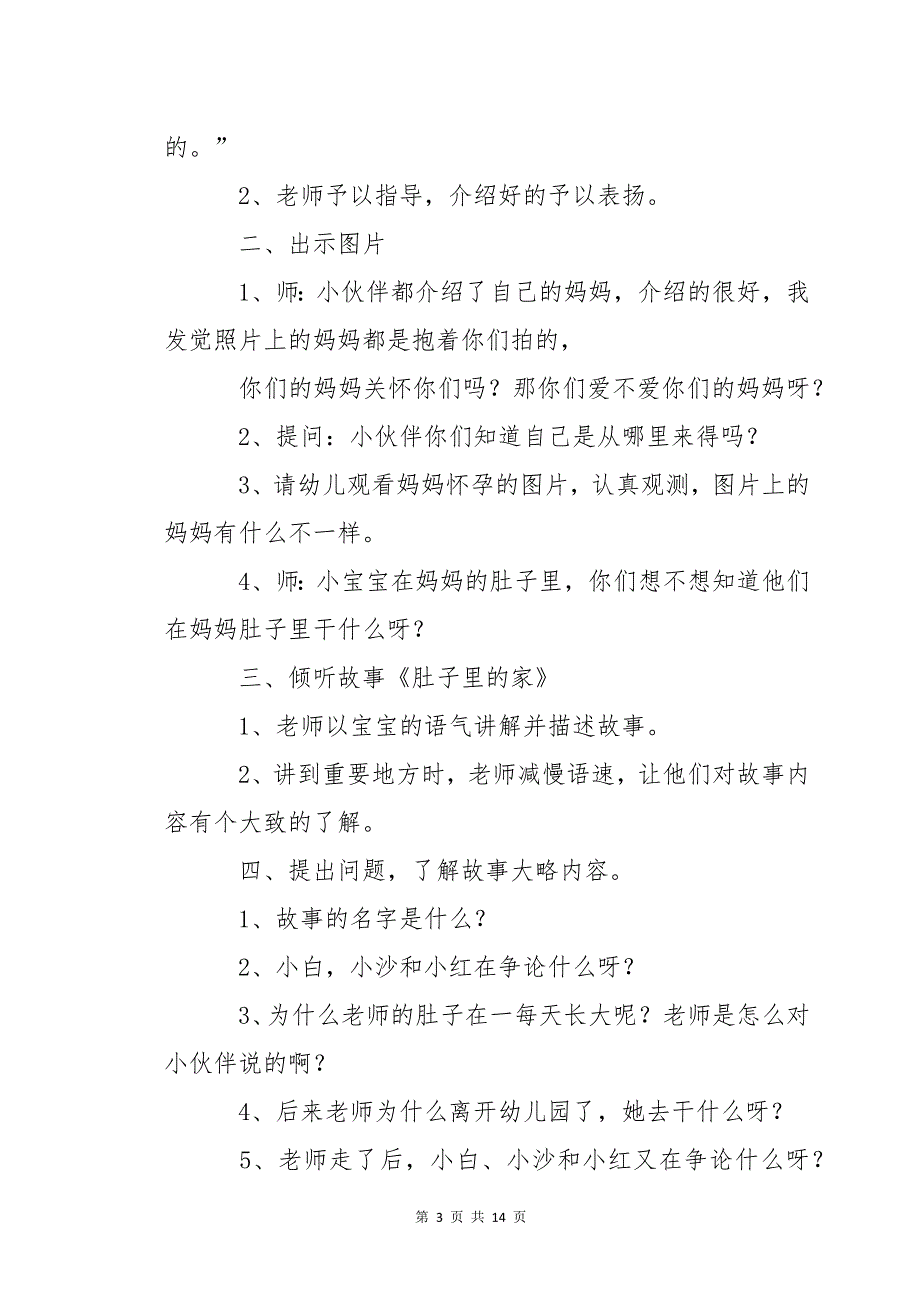 的。”
2、老师予以指导，介绍好的予以表扬。
二、出示图片
1、师：小伙伴都介绍了自己的妈妈，介绍的很好，我
发觉照片上的妈妈都是抱着你们拍的，
你们的妈妈关怀你们吗？那你们爱不爱你们的妈妈呀？
2、提问：小伙伴你们知道自己是从哪里来得吗？
3、请幼儿观看妈妈怀孕的图片，认真观测，图片上的
妈妈有什么不一样。
4、师：小宝宝在妈妈的肚子里，你们想不想知道他们
在妈妈肚子里干什么呀？
三、倾听故事《肚子里的家》
1、老师以宝宝的语气讲解并描述故事。
2、讲到重要地方时，老师减慢语速，让他们对故事内
容有个大致的了解。
四、提出问题，了解故事大略内容。
1、故事的名字是什么？
2、小白，小沙和小红在争论什么呀？
3、为什么老师的肚子在一每天长大呢？老师是怎么对
小伙伴说的啊？
4、后来老师为什么离开幼儿园了，她去干什么呀？
5、老师走了后，小白、小沙和小红又在争论什么呀？
第 3 页 共 14 页